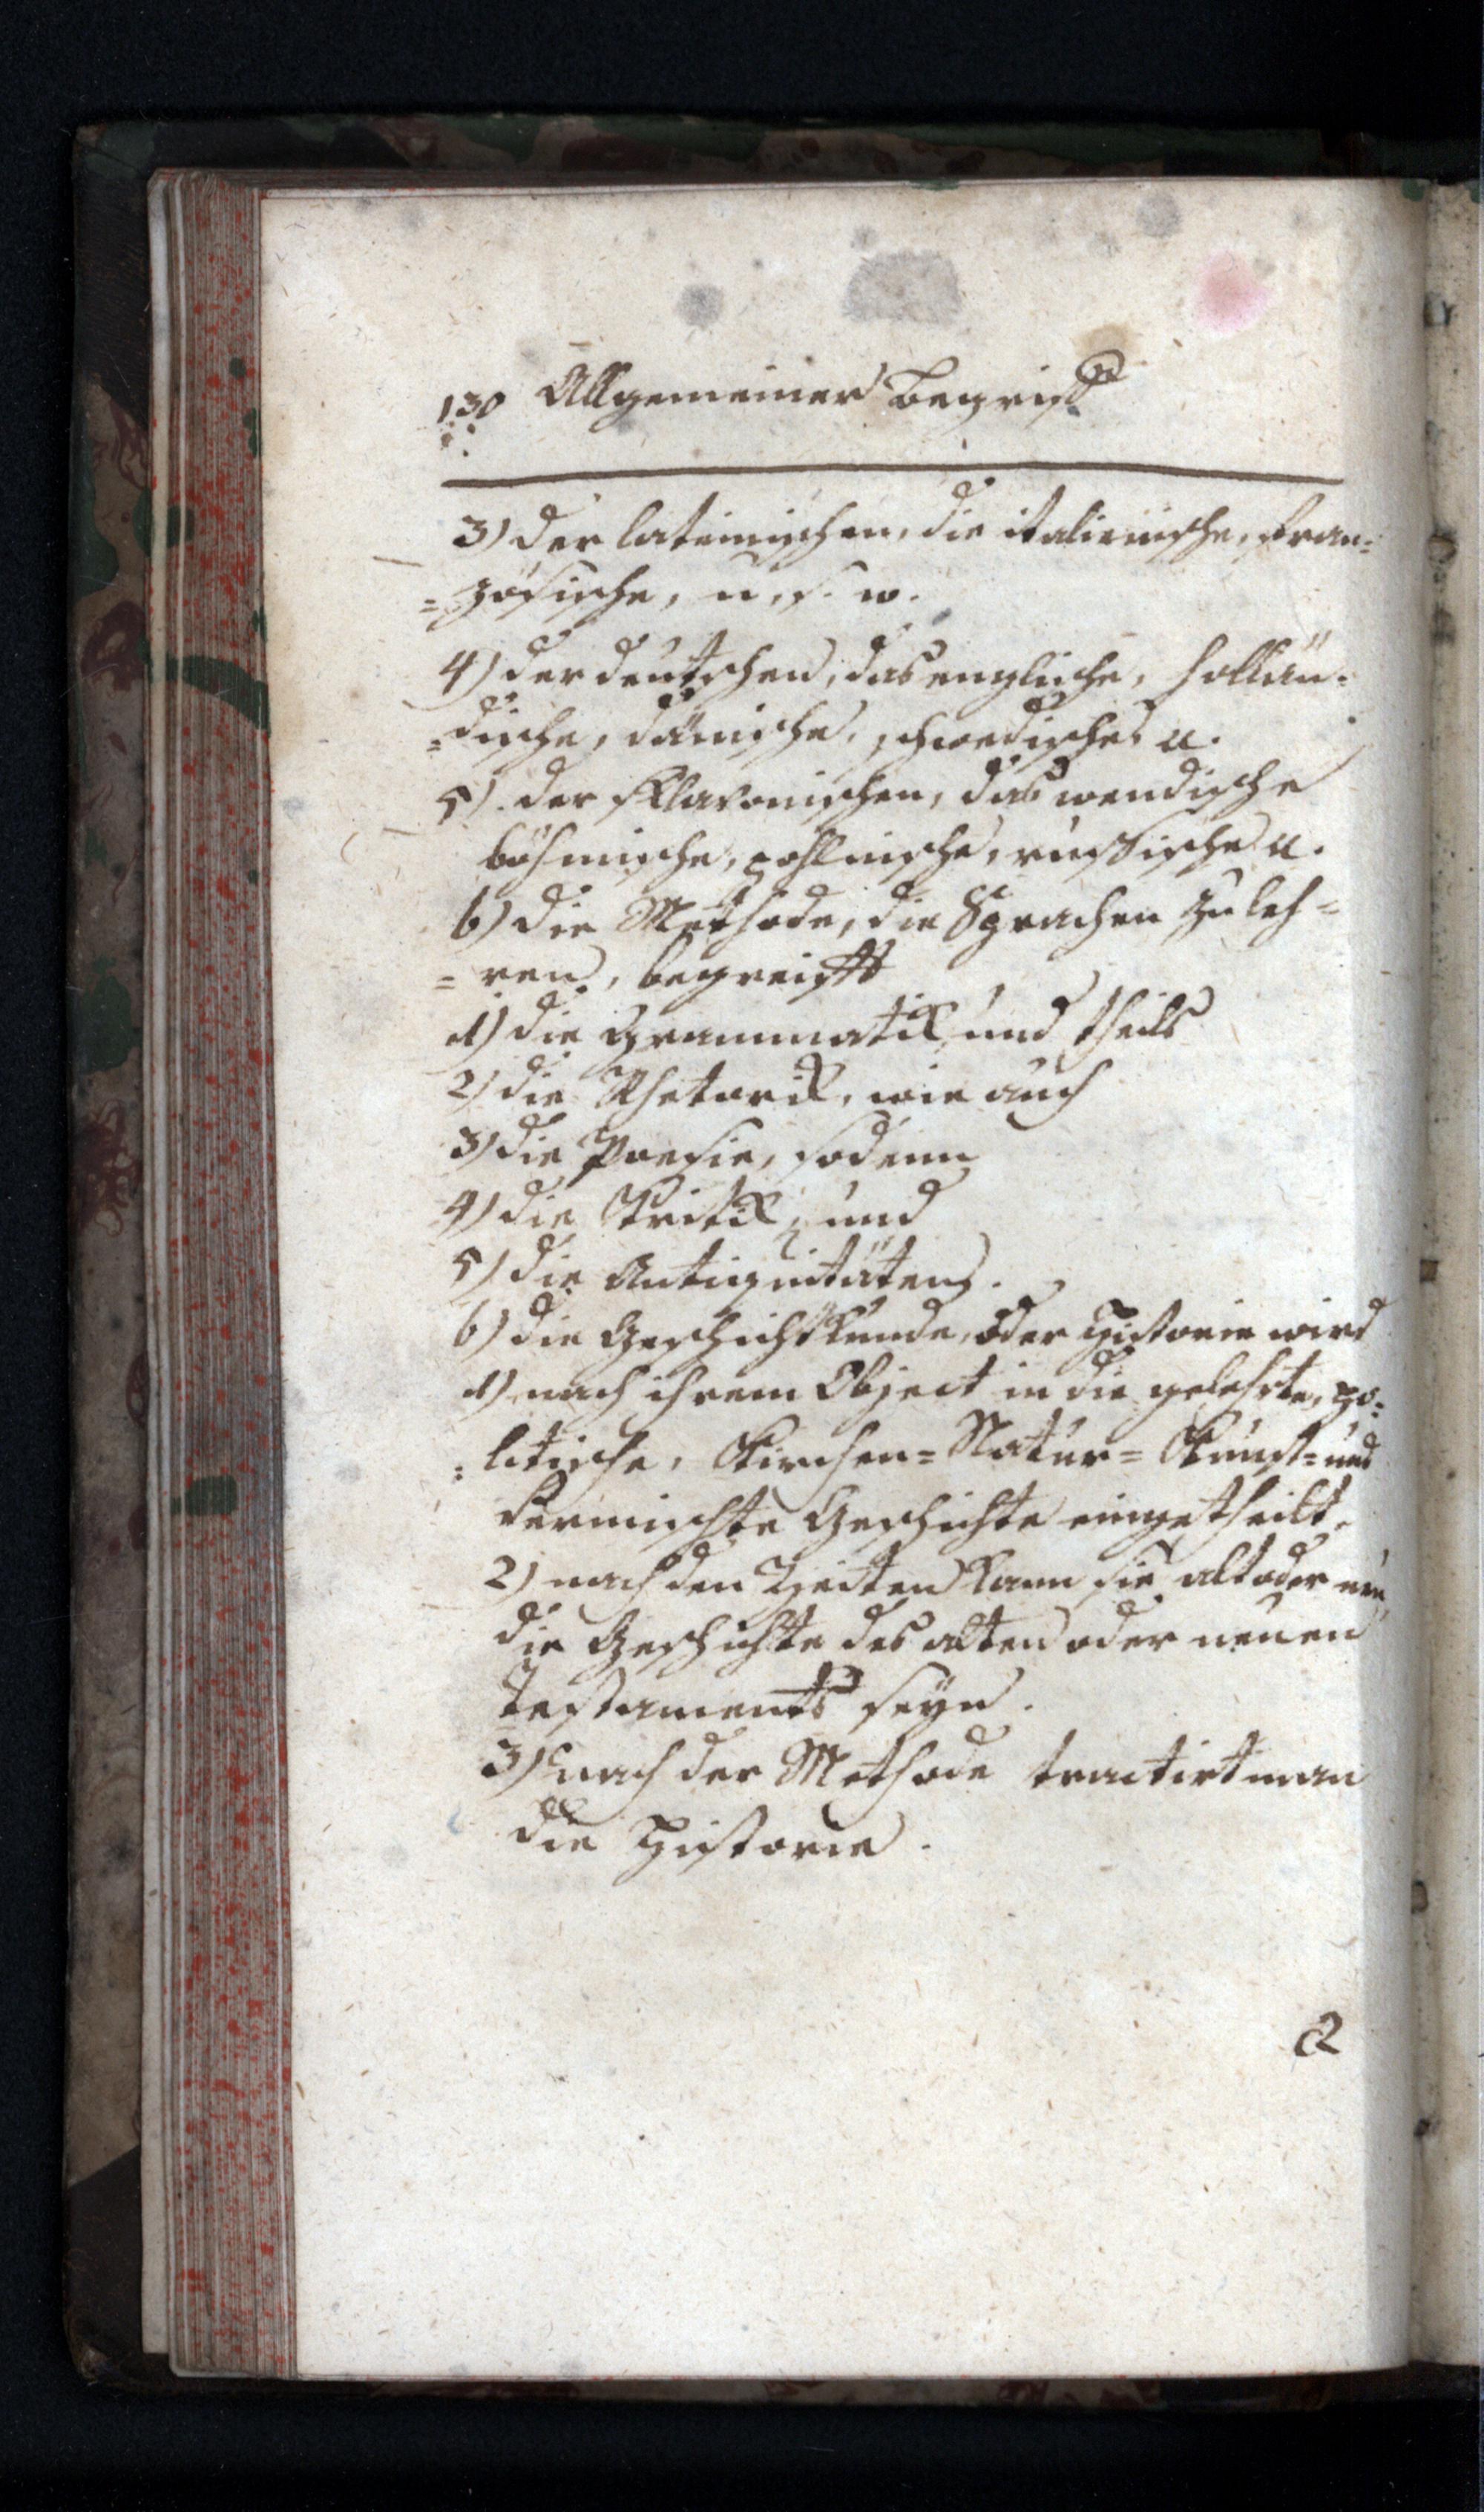 130 Allgemeiner Begriff
3) der lateinischen, die italienische, fran=
=zösische, u. s. w.
4) der deutschen, das englische, hollän=
=dische, dänische, schwedische u.
5) der sklavonischen, das wendische
böhmische, pohlnische, russische u.
b) die Methode, die Sprachen zu leh=
=ren, begreifft
1) die Grammatik, und theils
2) die Rhetorik, wie auch
3) die Poesie, sodenn
4) die Kritik, und
5) die Antiquitäten.
b) die Geschichtkunde, oder Historie wird
1) nach ihrem Object in die gelehrte, po=
=litische, Kirchen= Natur= Kunst= und
vermischte Geschichte eingetheilt.
2) nach den Zeiten kann sie alt oder neu,
die Geschichte des alten oder neuen
Testaments seyn.
3) nach der Methode tractirt man
die Historie.